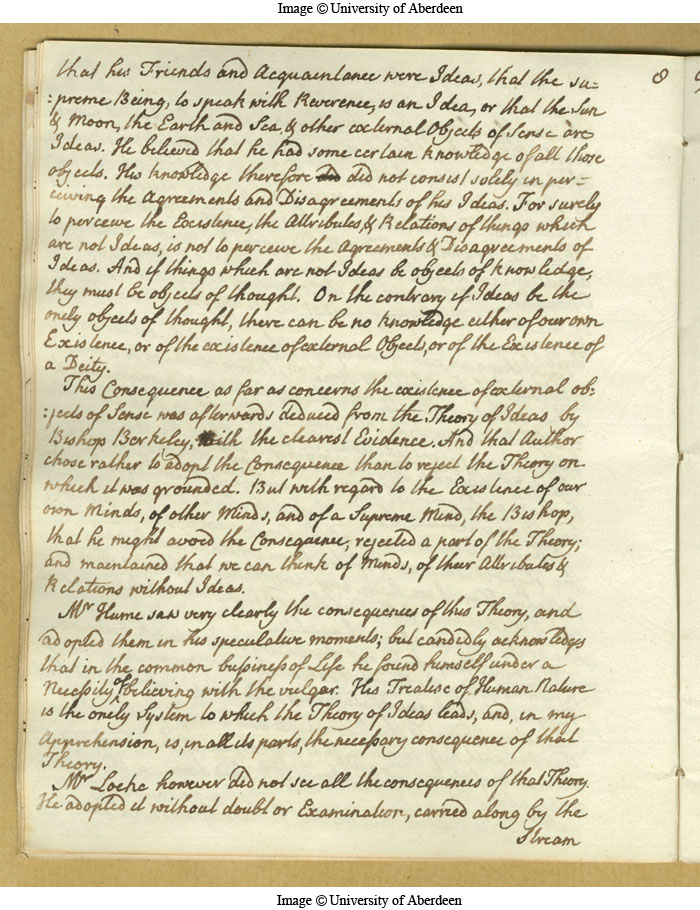 Image © University of Aberdeen
8
that his Friends and Acquaintance were Ideas, that the su=
:preme Being, to speak with Reverence, is an Idea, or that the Sun
& Moon, the Earth and Sea, & other external Objects of Sense are
Ideas. He believed that he had some certain knowledge of all those
objects. His knowledge therefore did did not consist solely in per=
ceiving the Agreements and Disagreements of his Ideas. For surely
to perceive the Existence, the Attributes, & Relations of things which
are not Ideas, is not to perceive the Agreements & Disagreements of
Ideas. And if things which are not Ideas be objects of knowledge,
they must be objects of thought. On the contrary if Ideas be the
onely objects of thought, there can be no knowledge either of our own
Existence, or of the existence of external Objects, or of the Existence of
a Deity.
This Consequence as far as concerns the existence of external ob-
:jects of Sense was afterwards deduced from the Theory of Ideas by
Bishop Berkeley, with the clearest Evidence. And that Author
chose rather to adopt the Consequence than to reject the Theory on
which it was grounded. But with regard to the Existence of our
own Minds, of other Minds, and of a Supreme Mind, the Bishop,
that he might avoid the Consequence, rejected a part of the Theory;
and maintained that we can think of Minds, of their Attributes &
Relations without Ideas.
Mr Hume saw very clearly the consequences of this Theory, and
adopted them in his speculative moments; but candidly acknowledges
that in the common bussiness of Life he found himself under a
Necessity of believing with the vulgar. His Treatise of Human Nature
is the onely System to which the Theory of Ideas leads, and, in my
Apprehension, is, in all its parts, the necessary consequence of that
Theory.
Mr Locke however did not see all the consequences of that Theory.
He adopted it without doubt or Examination, carried along by the
Stream
Image © University of Aberdeen